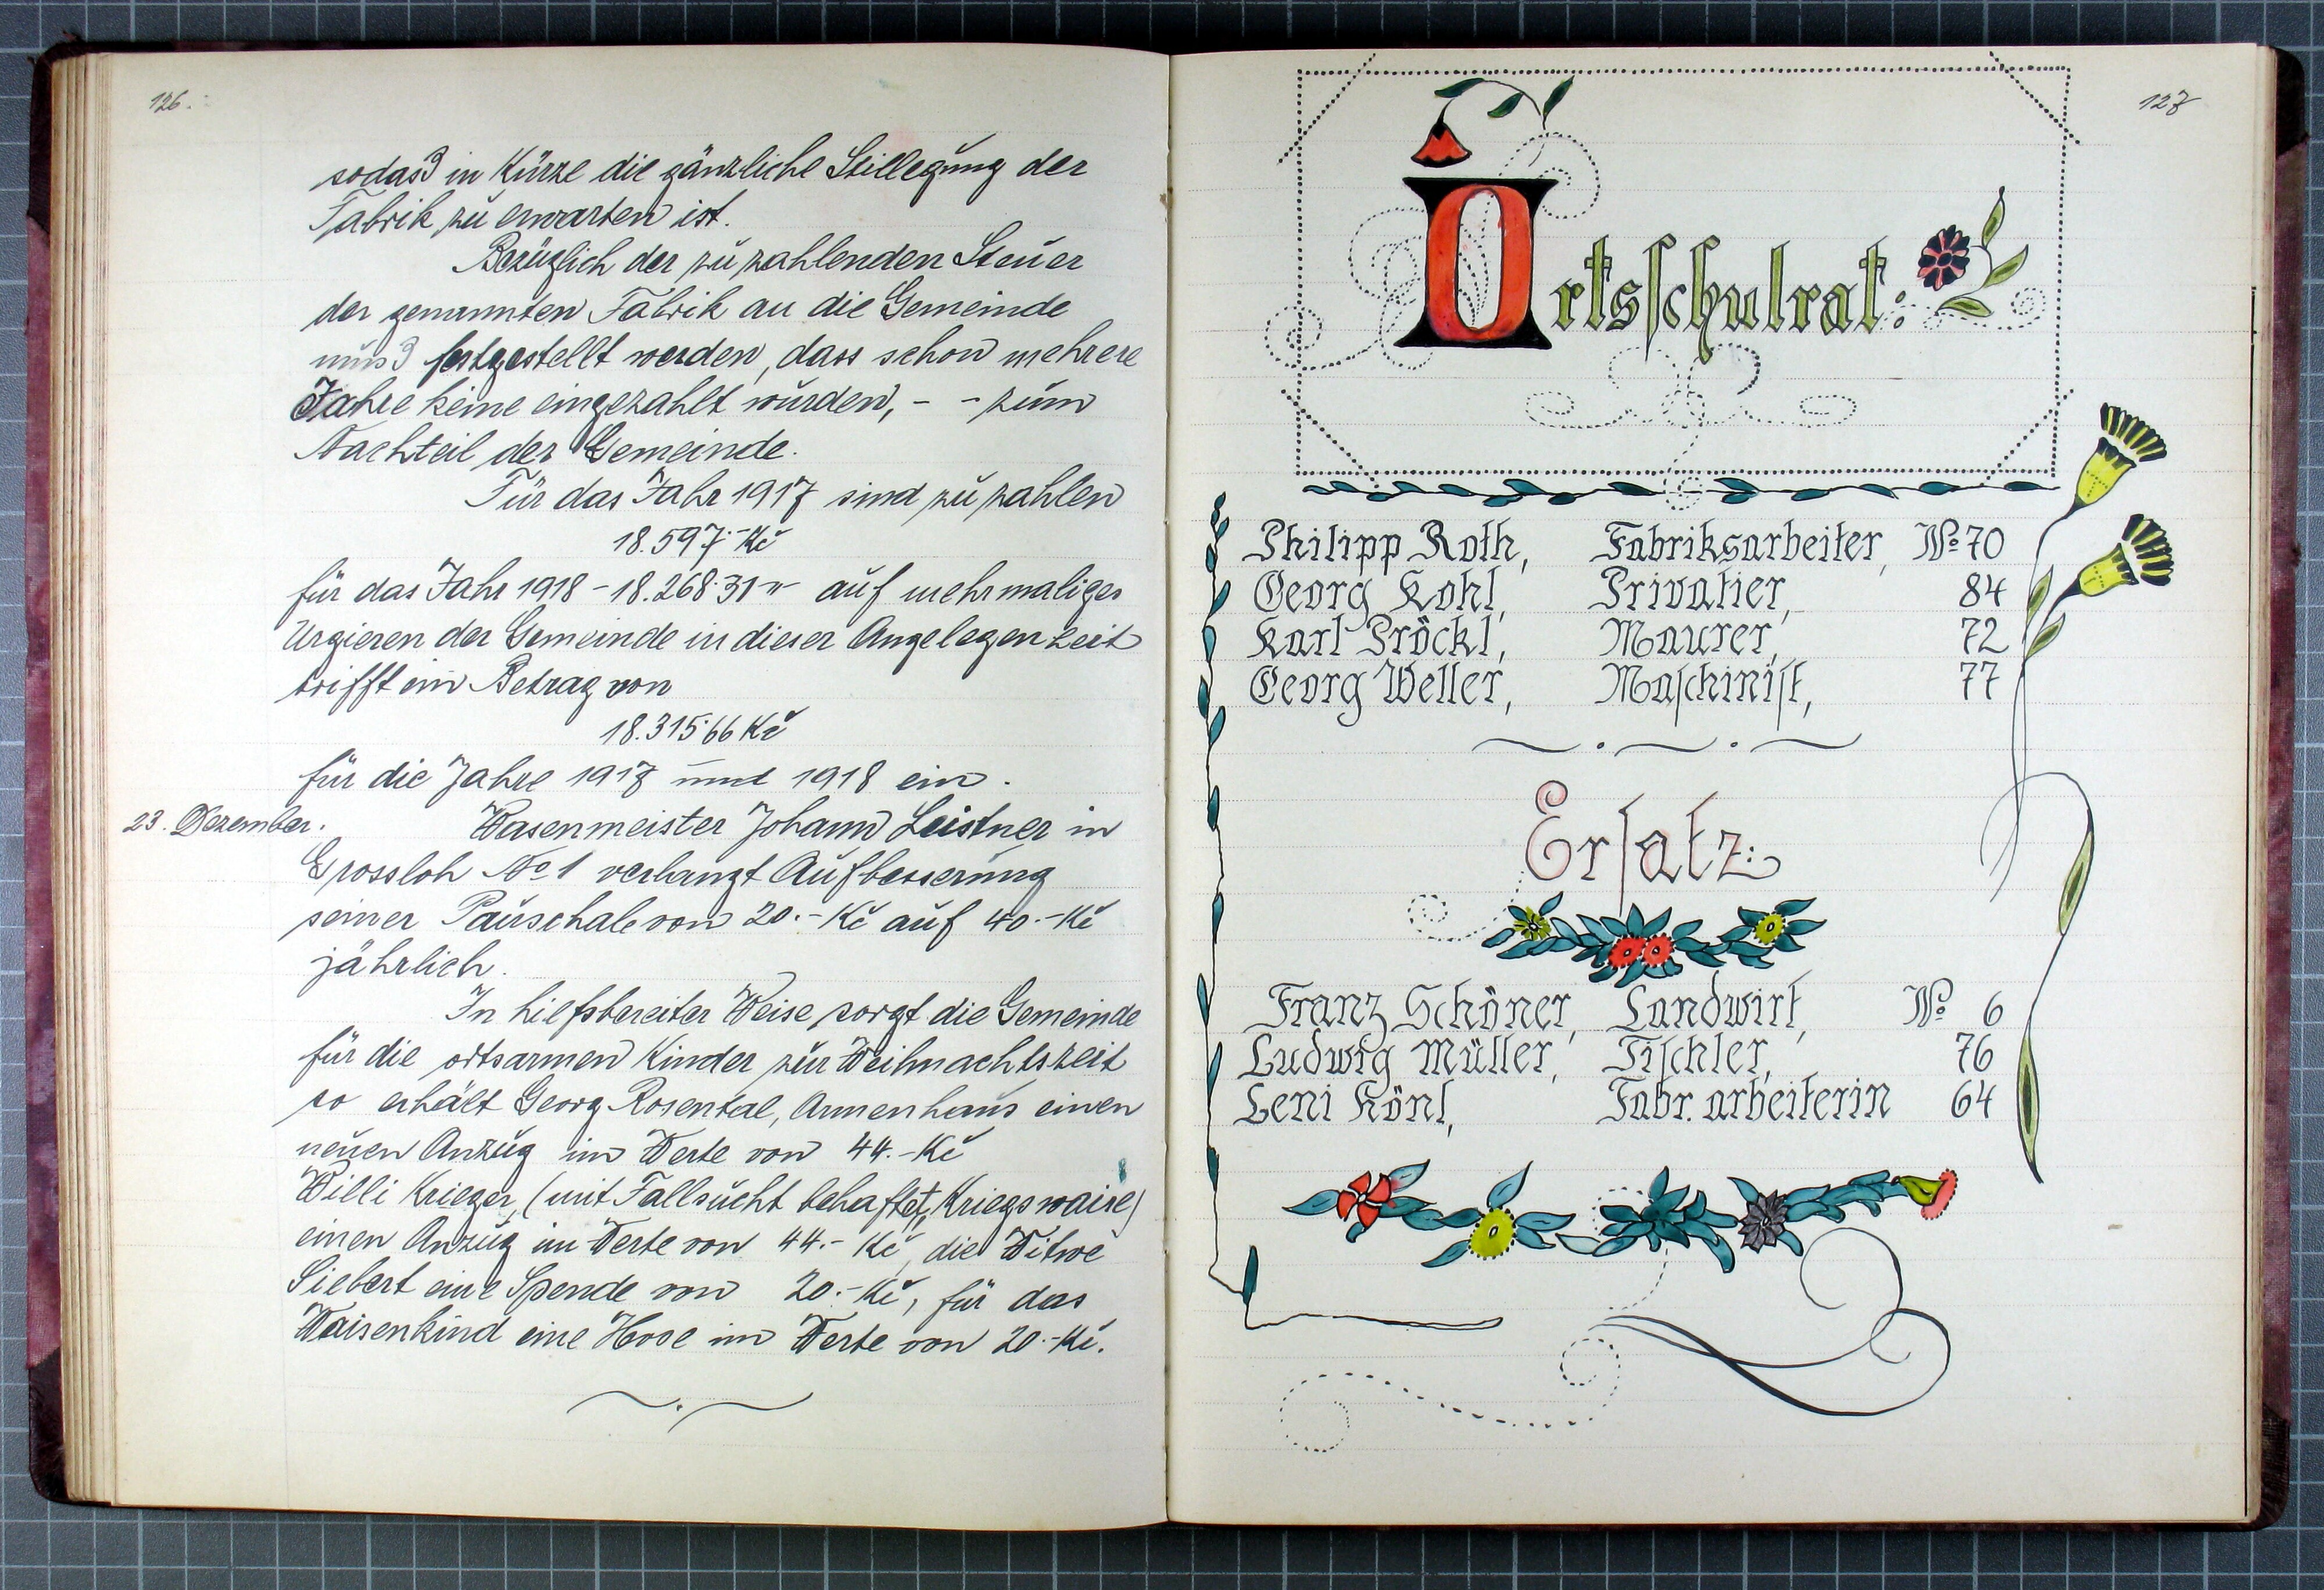 126.
sodass in Kürze die gänzliche Stillegung der
Fabrik zu erwarten ist.
Bezüglich der zu zahlenden Steuer
der genannten Fabrik an die Gemeinde
muss festgestellt werden, dass schon mehrere
Jahre keine eingezahlt wurden, - - zum
Nachteil der Gemeinde.
Für das Jahr 1917 sind zu zahlen
18.597·- Kč
für das Jahr 1918 - 18.268·31 " auf mehrmaliges
Urgieren der Gemeinde in dieser Angelegenheit
trifft im Betrag von
18.315·66 Kč
für die Jahre 1917 und 1918 ein.
23. Dezember. Wasenmeister Johann Leistner in
Grossloh No 1 verlangt Aufbesserung
seiner Pauschale von 20.- Kč auf 40.- Kč
jährlich.
In hielfsbereiter Weise sorgt die Gemeinde
für die ortsarmen Kinder zur Weihnachtszeit
so erhält Georg Rosental, Armenhaus einen
neuen Anzug im Werte von 44.- Kč
Willi Krieger, (mit Fallsucht behaftet, Kriegswaise)
einen Anzug im Werte von 44.- Kč, die Witwe
Siebert eine Spende von 20.- Kč, für das
Waisenkind eine Hose im Werte von 20.- Kč.
127
Ortsschulrat:
Philipp Roth, Fabriksarbeiter, No 70
Georg Kohl, Privatier, 84
Karl Pröckl, Maurer, 72
Georg Weller, Maschinist, 77
Ersatz:
Franz Schöner, Landwirt, No 6
Ludwig Müller, Tischler, 76
Leni Könl, Fabr. arbeiterin 64